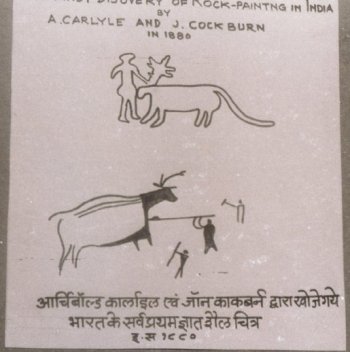 DISOVERY OF ROCK-PAINTNG IN INDIA
BY
A.CARLYLE AND J. COCKBURN
IN 1880
आर्चिबॉल्ड कार्लाइल एवं जॉन काकबर्न द्वारा खोजे गये
भारत के सर्वप्रथम ज्ञात शैल चित्र
इ.स १८८०